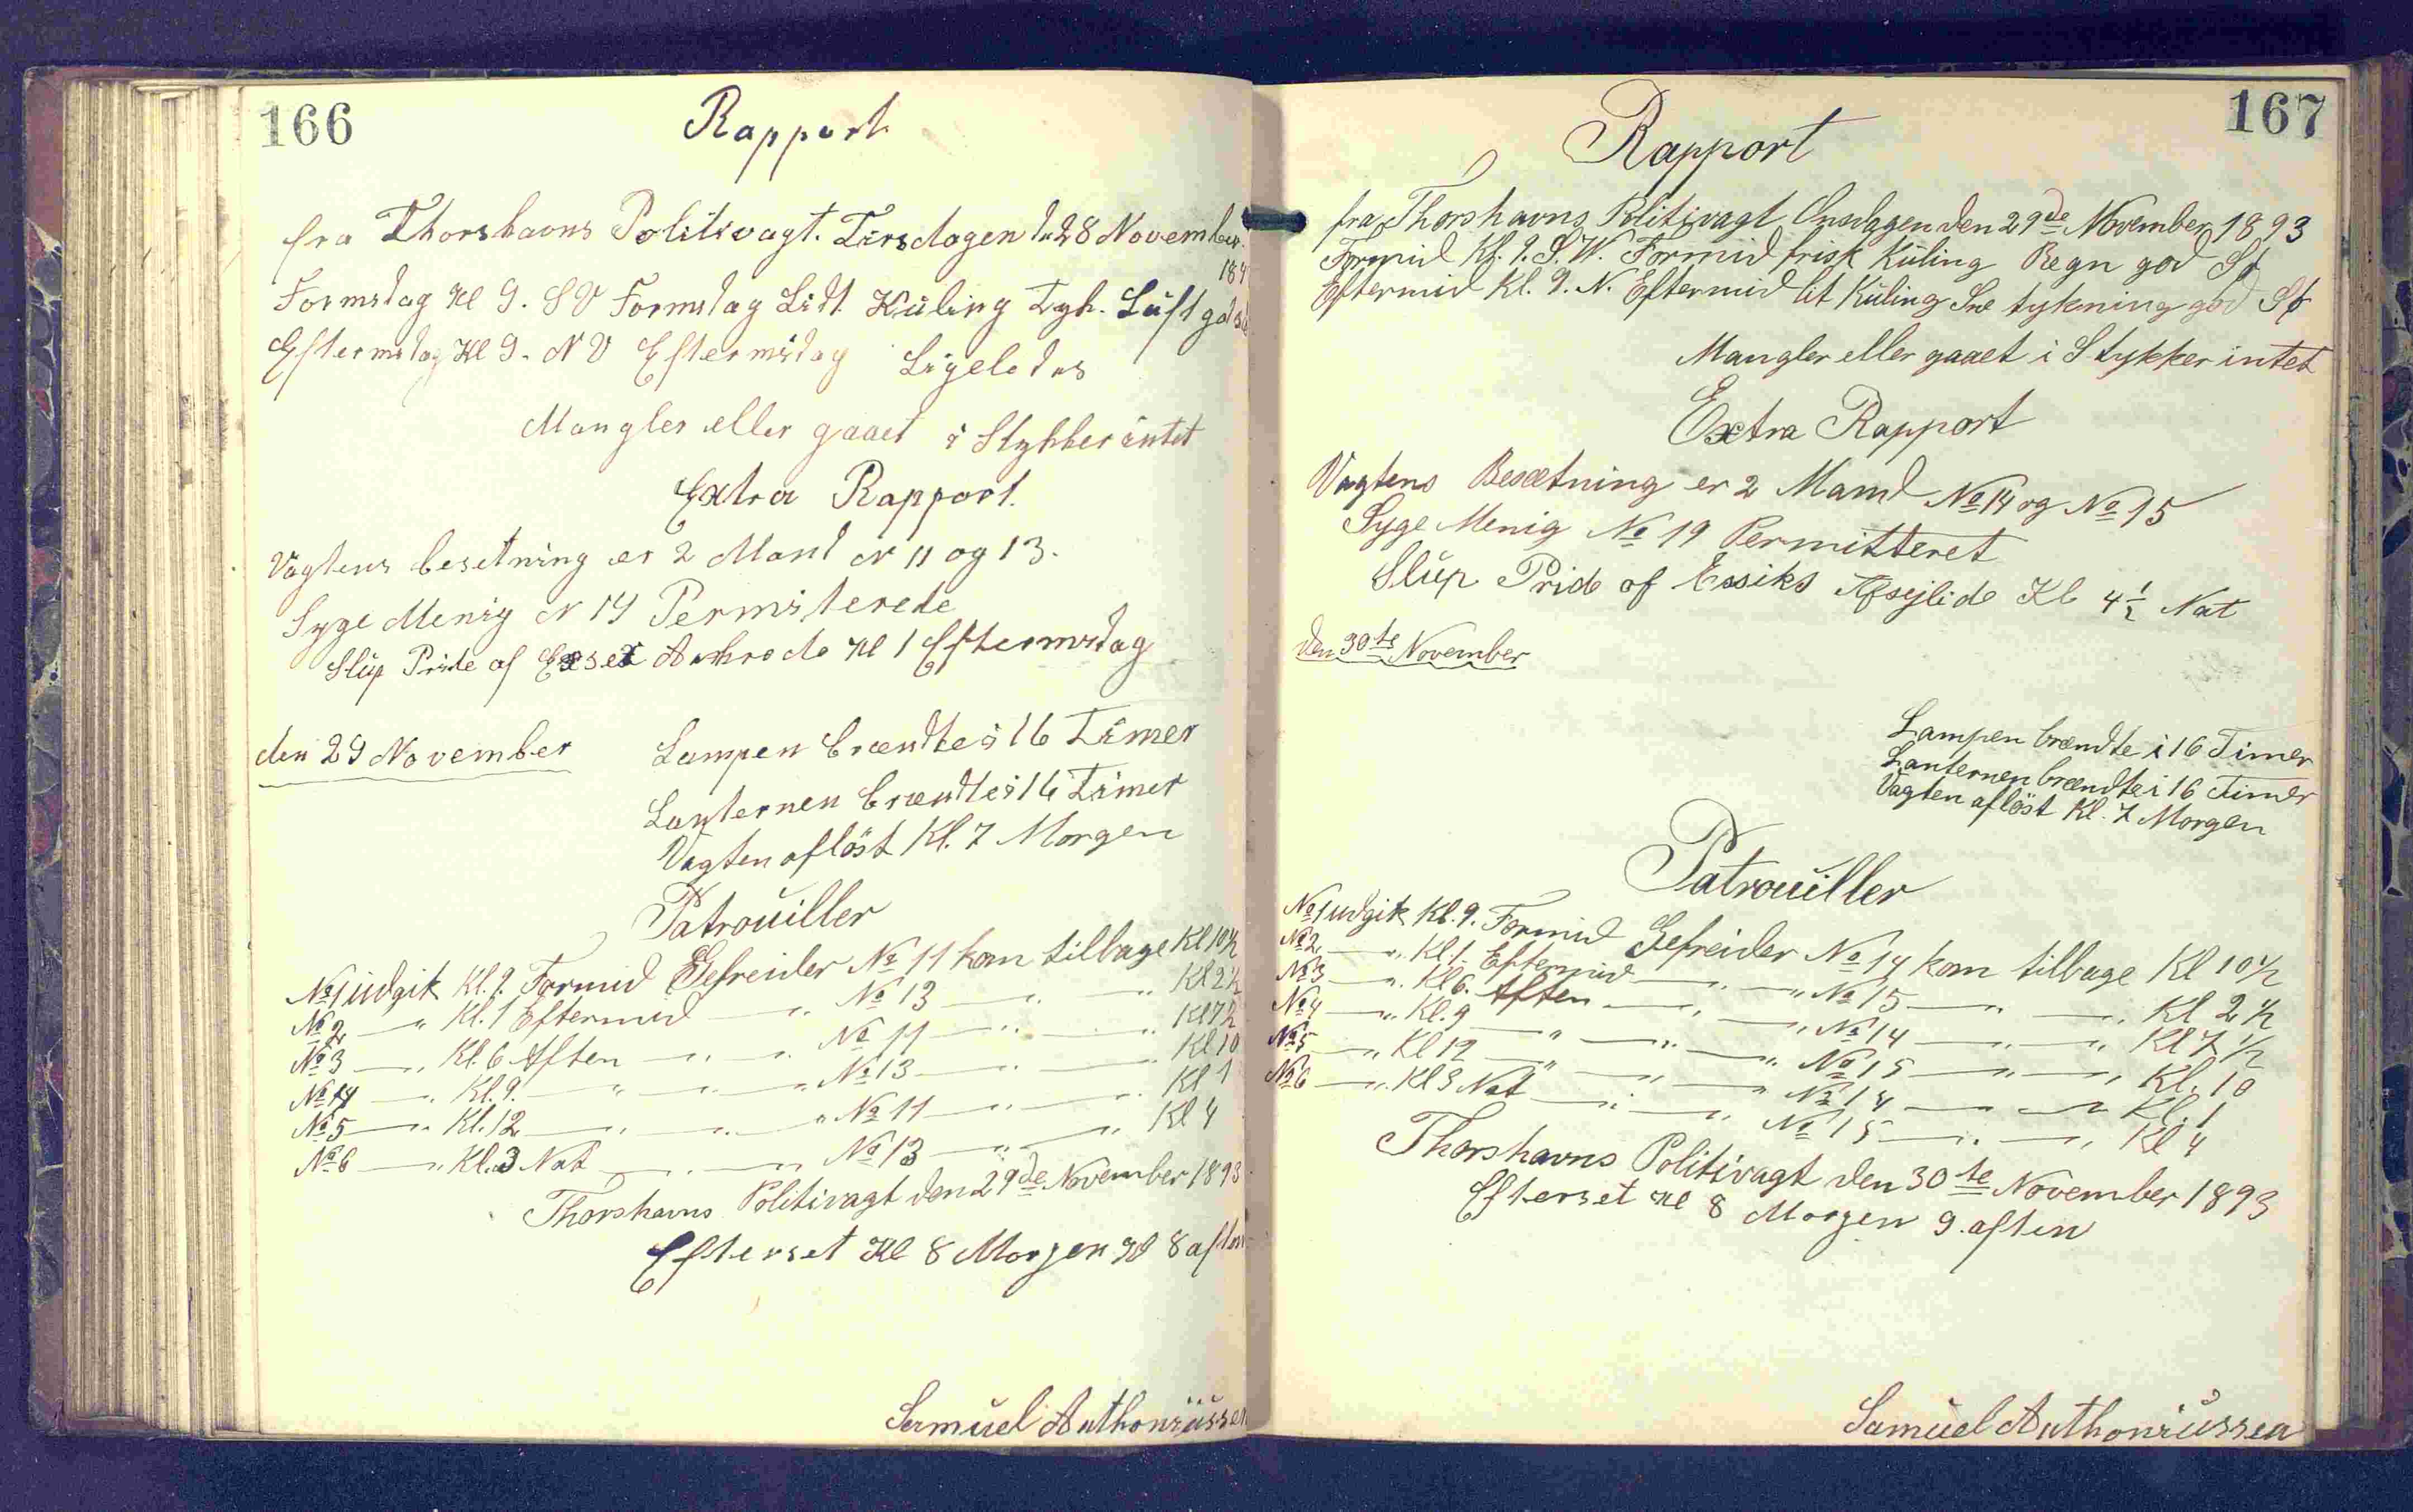 166
Rapport
fra Thorshavns Politivagt. Tirsdagen d. 28 November.
189
Formidag Kl 9. S V Formidag Lidt Küling Tyk. Luft god Sø
Eftermidag Kl 9. N V Eftermidag Ligeledes
Mangler eller gaaet i Stykker intet
Extra Rapport.
Vagtens besetning er 2 Mand N 11 og 13.
Syge Menig N 19 Permiterede
Slüp Pride of Essex Ankrede Kl 1 Eftermidag
den 29 November
Lampen brændte i 16 Timer
Lanternen brændte i 16 Timer
Vagten aflöst Kl. 7 Morgen
Patrouiller
No 1 udgik Kl. 9. Formid Gefreider No 11 kom tilbage Kl 10½
No 2 — " Kl. 1 Eftermid — " No 13 — " — " Kl 2½
No 3 — " Kl. 6 Aften — " — " No 11 — " — " Kl 7½
No 4 — " Kl. 9. — " — " — " No 13 — " — " Kl 10
No 5 — " Kl. 12 — " — " — " No 11 — " — " Kl 1
No 6 — " Kl. 3 Nat — " — " No 13 — " — " Kl 4
Thorshavns Politivagt den 29de November 1893
Efterset Kl 8 Morgen Kl 8 aften
Samüel Anthoniüssen
167
Rapport
fra Thorshavns Politivagt Onsdagen den 29de November 1893
Formid Kl. 9. S. W. Formid frisk Küling Regn god Sø
Eftermid Kl. 9. N. Eftermid lit Küling Sne tykning god Sø
Mangler eller gaaet i Stykker intet
Extra Rapport
Vagtens Besætning er 2 Mand No 14 og No 15
Syge Menig No 19 Permitteret
Slüp Pride of Essiks Afsejlide Kl 4½ Nat
den 30te November
Lampen brændte i 16 Timer
Lanternen brændte i 16 Timer
Vagten aflöst Kl. 7 Morgen
Patroüiller
No 1 udgik Kl. 9. Formid Gefreider No 14 kom tilbage Kl 10½
No 2 — " Kl. 1. Eftermid — " — " No 15 — " — " Kl 2½
No 3 — " Kl 6. Aften — " — " No 14 — " — " Kl 7½
No 4 — " Kl. 9 — " — " — " No 15 — " — " Kl. 10
No 5 — " Kl 12 — " — " — " No 14 — " — " Kl. 1
No 6 — " Kl 3 Nat — " — " No 15 — " — " Kl 4
Thorshavns Politivagt den 30te November 1893
Efterset Kl 8 Morgen 9. aften
Samüel Anthoniüssen